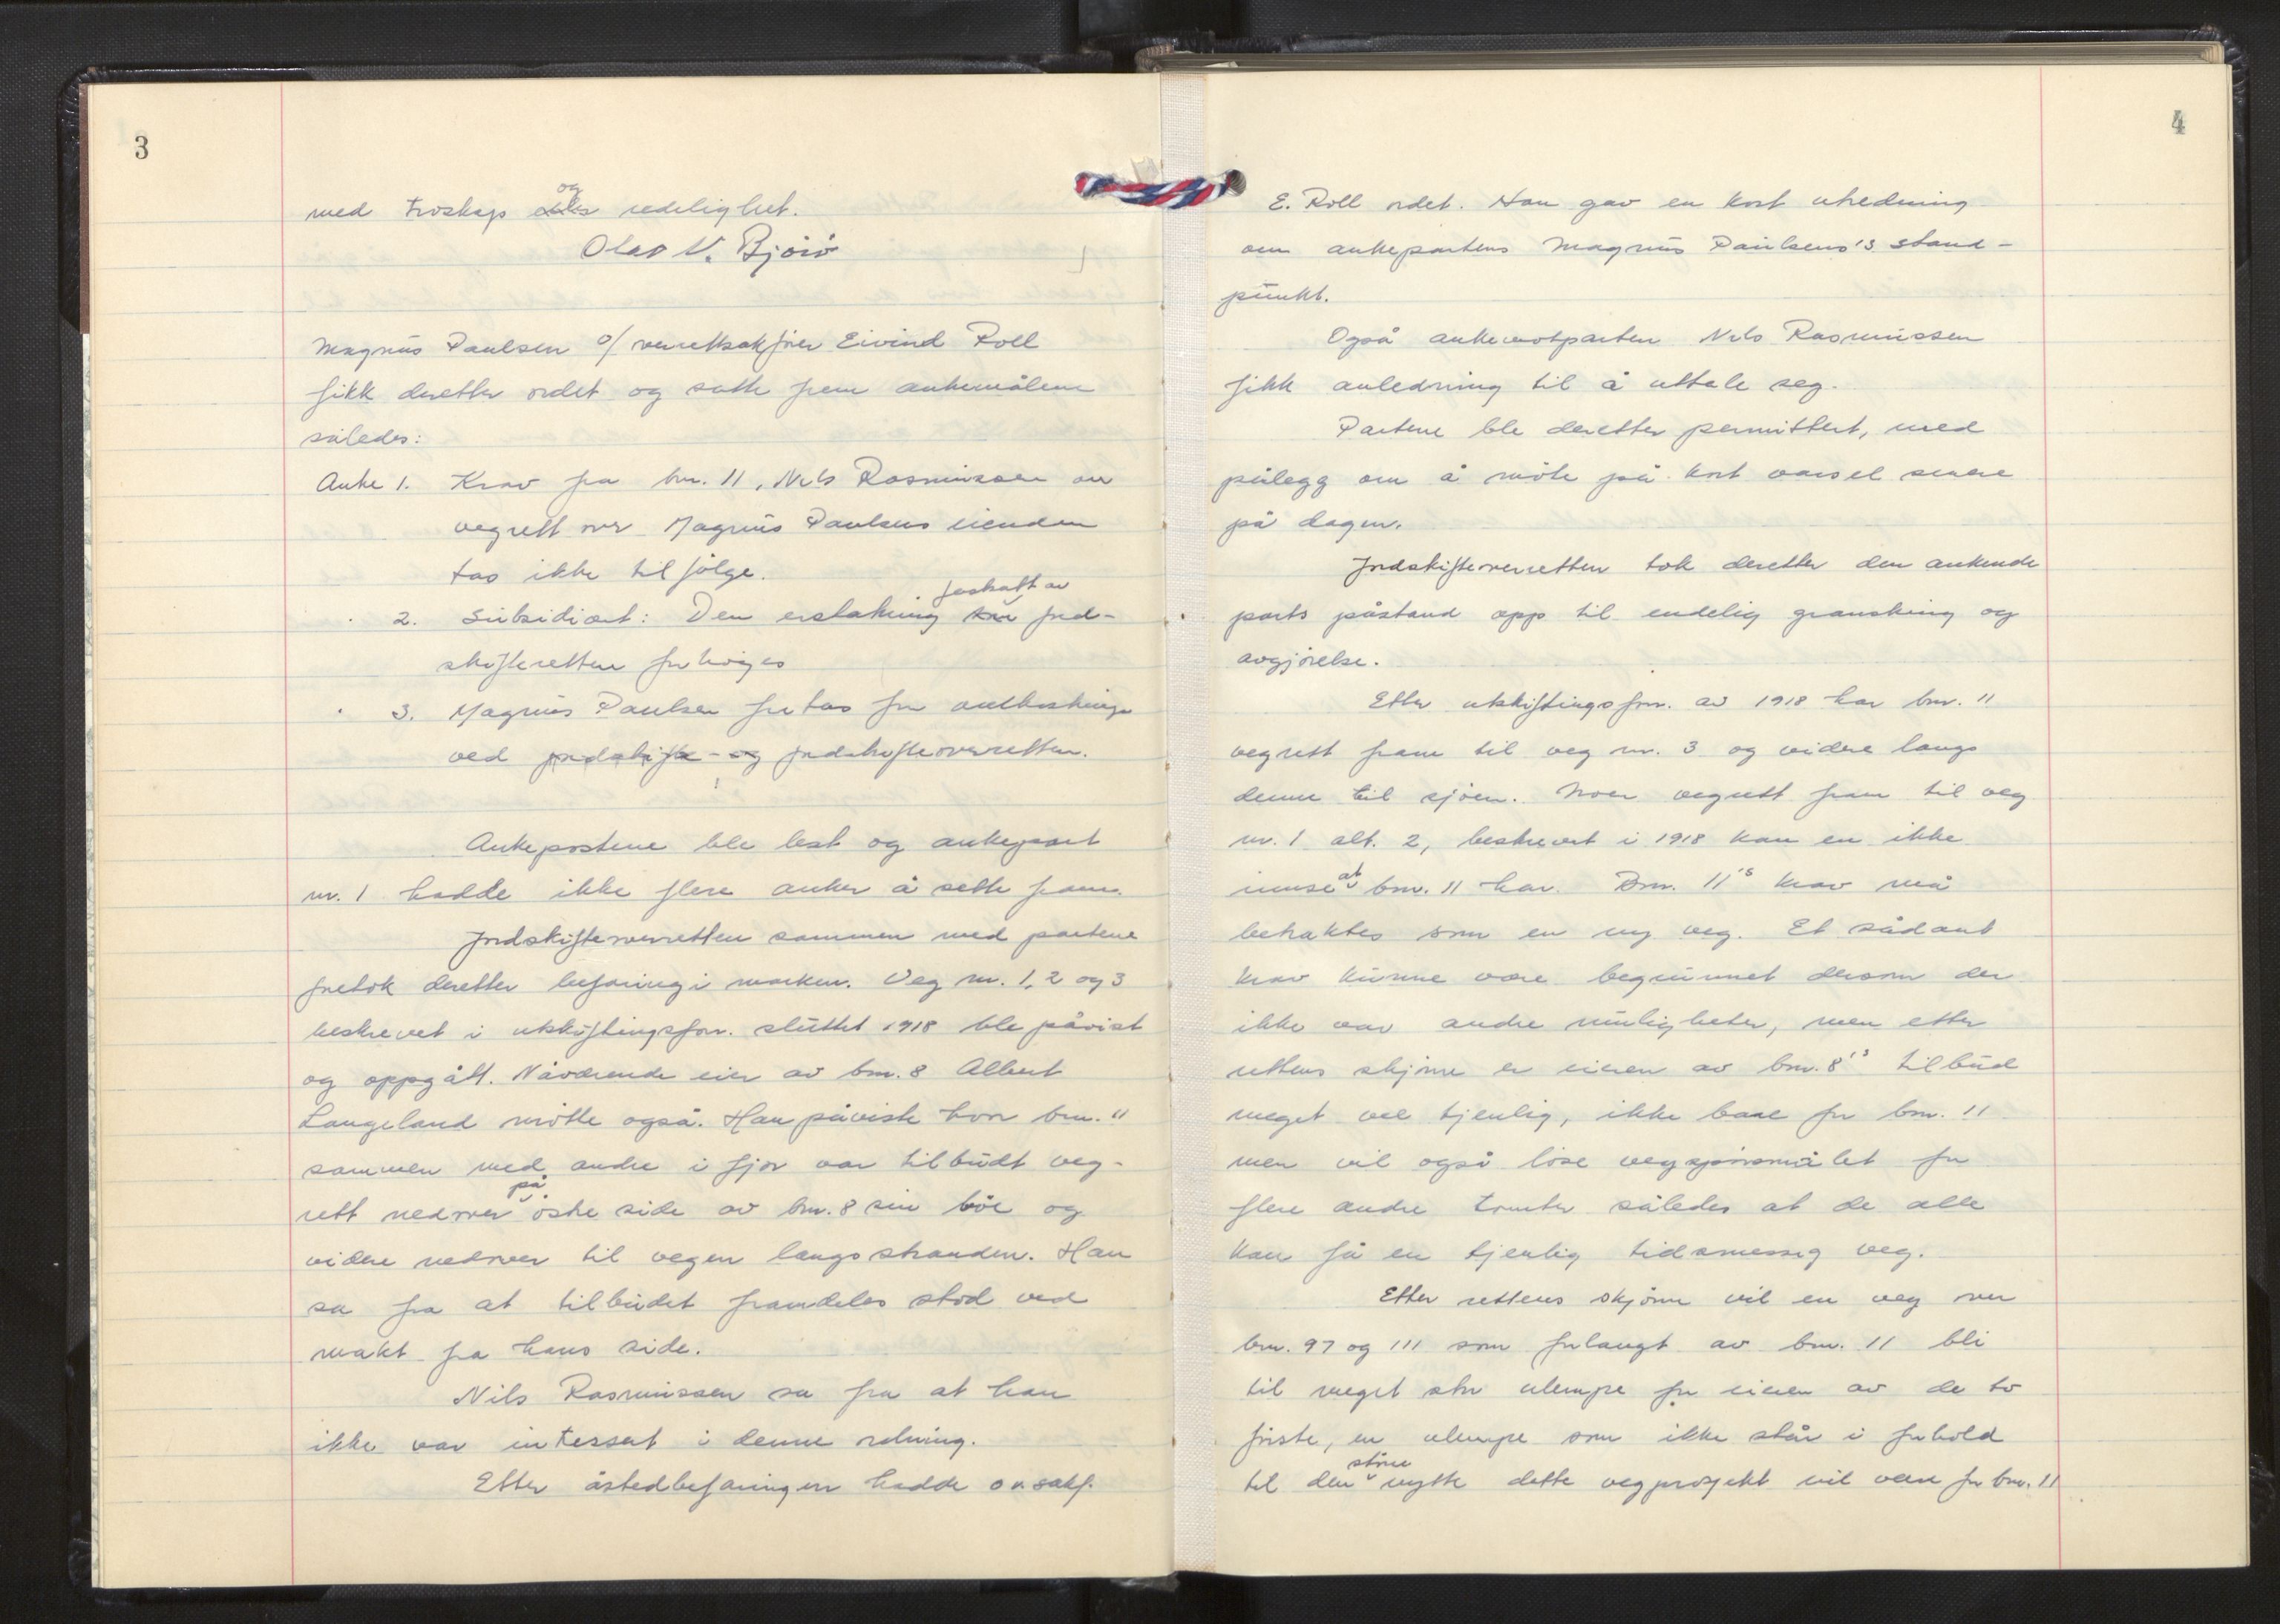 3
med troskap og redelighet.
Olav V. Björó
Magnus Paulsen v/ overrettsakförer Eivind Roll
fikk deretter ordet og satte frem ankemålene
således:
Anke 1. Krav fra bnr. 11, Nils Rasmussen om
vegrett over Magnus Paulsens eiendom
tas ikke til fölge.
" 2. Subsidiært: Den erstatning fastsatt av jord-
skifteretten forhöyes
" 3. Magnus Paulsen fritas for omkostninger
ved jordskifte- og jordskifteoverretten.
Ankepostene ble lest og ankepart
nr. 1 hadde ikke flere anker å sette fram.
Jordskifteoverretten sammen med partene
foretok deretter befaring i marken. Veg nr. 1, 2 og 3
beskrevet i utskiftingsforr. sluttet 1918 ble påvist
og oppgått. Nåværende eier av bnr. 8 Albert
Langeland mötte også. Han påviste hvor bnr. 11
sammen med andre i fjor var tilbudt veg-
rett nedover på östre side av bnr. 8 sin böe og
videre nedover til vegen langs stranden. Han
sa fra at tilbudet framdeles stod ved
makt fra hans side.
Nils Rasmussen sa fra at han
ikke var intessert i denne ordning.
Etter åstedbefaringen hadde o.r.sakf.
4
E. Roll ordet. Han gav en kort utredning
om ankepartens Magnus Paulsens's stand-
punkt.
Også ankemotparten Nils Rasmussen
fikk anledning til å uttale seg.
Partene ble deretter permittert, med
pålegg om å möte på kort varsel senere
på dagen.
Jordskifteoverretten tok deretter den ankende
parts påstand opp til endelig gransking og
avgjörelse.
Etter utskiftingsforr. av 1918 har bnr. 11
vegrett fram til veg nr. 3 og videre langs
denne til sjöen. Noen vegrett fram til veg
nr. 1 alt. 2, beskrevet i 1918 kan en ikke
innse at bnr. 11 har. Bnr. 11's krav må
betraktes som en ny veg. Et sådant
krav kunne være begrunnet dersom der
ikke var andre muligheter, men etter
rettens skjönn er eieren av bnr. 8's tilbud
meget vel tjenlig, ikke bare for bnr. 11
men vil også löse vegspörsmålet for
flere andre tomter således at de alle
kan få en tjenlig tidsmessig veg.
Etter rettens skjönn vil en veg over
bnr. 97 og 111 som forlangt av bnr. 11 bli
til meget stor ulempe for eieren av de to
förste, en ulempe som ikke står i forhold
til den större nytte dette vegprosjekt vil være for bnr. 11